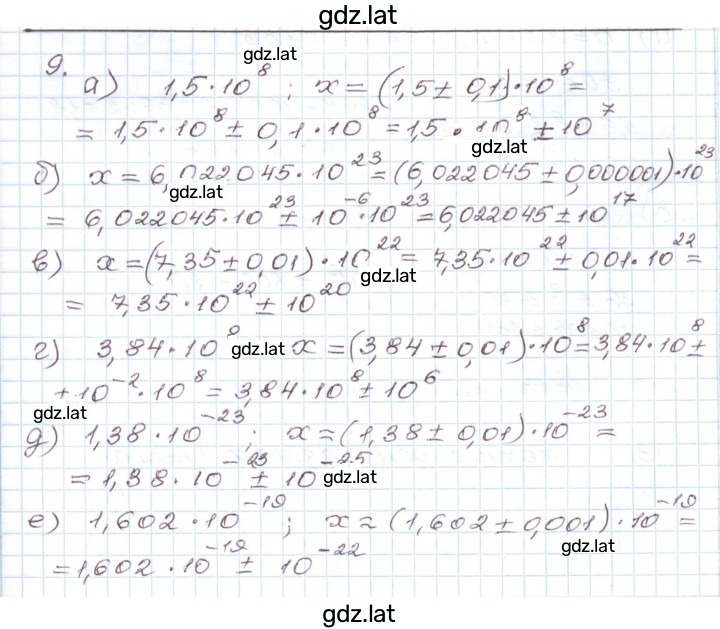 gdz.lat
9. а) 1,5·10⁸ ; x = (1,5 ± 0,1)·10⁸ =
gdz.lat
= 1,5·10⁸ ± 0,1·10⁸ = 1,5·10⁸ ± 10⁷
gdz.lat
б) x = 6,022045·10²³ = (6,022045 ± 0,000001)·10²³
gdz.lat
= 6,022045·10²³ ± 10⁻⁶·10²³ = 6,022045 ± 10¹⁷
в) x = (7,35 ± 0,01)·10²² = 7,35·10²² ± 0,01·10²² =
gdz.lat
= 7,35·10²² ± 10²⁰
г) 3,84·10⁸ gdz.lat x = (3,84 ± 0,01)·10⁸ = 3,84·10⁸ ±
± 10⁻²·10⁸ = 3,84·10⁸ ± 10⁶
gdz.lat
д) 1,38·10⁻²³ ; x = (1,38 ± 0,01)·10⁻²³ =
= 1,38·10⁻²³ ± 10⁻²⁵
gdz.lat
е) 1,602·10⁻¹⁹ ; x = (1,602 ± 0,001)·10⁻¹⁹ =
gdz.lat
= 1,602·10⁻¹⁹ ± 10⁻²²
gdz.lat